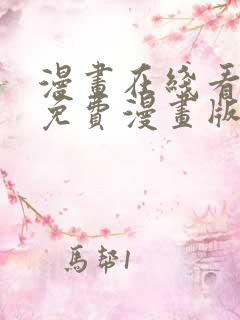 漫畫在綫看
免費漫畫版
馬幫1